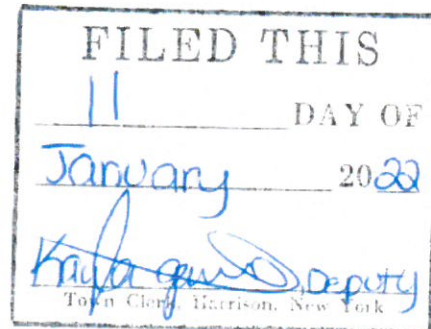 FILED THIS
11 DAY OF
January 2022
Kayla, Deputy
Town Clerk, Harrison, New York